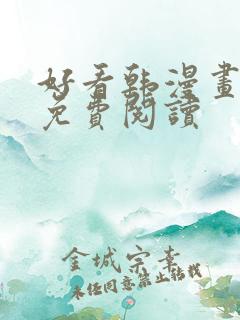 好看韩漫畫
免費閱讀
金城宗幸
未经同意禁止转载